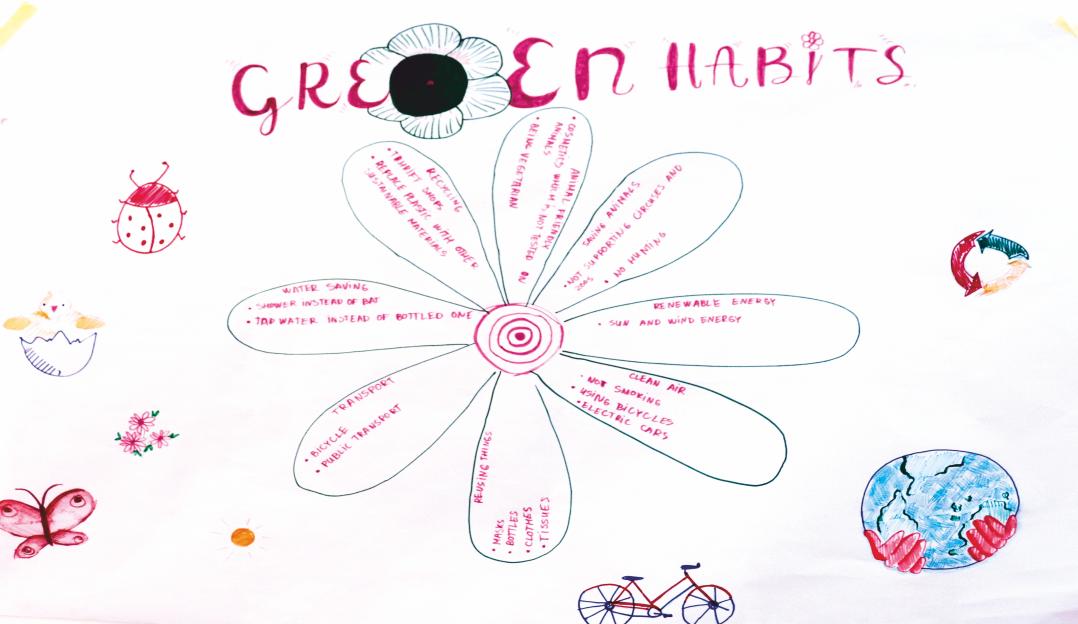 GREEN HABITS
RECYCLING
• THRIFT SHOPS
• REPLACE PLASTIC WITH OTHER
SUSTAINABLE MATERIALS
ANIMAL FRIENDLY
• COSMETICS WHICH IS NOT TESTED ON
ANIMALS
• BEING VEGETARIAN
SAVING ANIMALS
• NOT SUPPORTING CIRCUSES AND
ZOOS
• NO HUNTING
WATER SAVING
• SHOWER INSTEAD OF BAT
• TAP WATER INSTEAD OF BOTTLED ONE
RENEWABLE ENERGY
• SUN AND WIND ENERGY
TRANSPORT
• BICYCLE
• PUBLIC TRANSPORT
REUSING THINGS
• MASKS
• BOTTLES
• CLOTHES
• TISSUES
CLEAN AIR
• NOT SMOKING
• USING BICYCLES
• ELECTRIC CARS